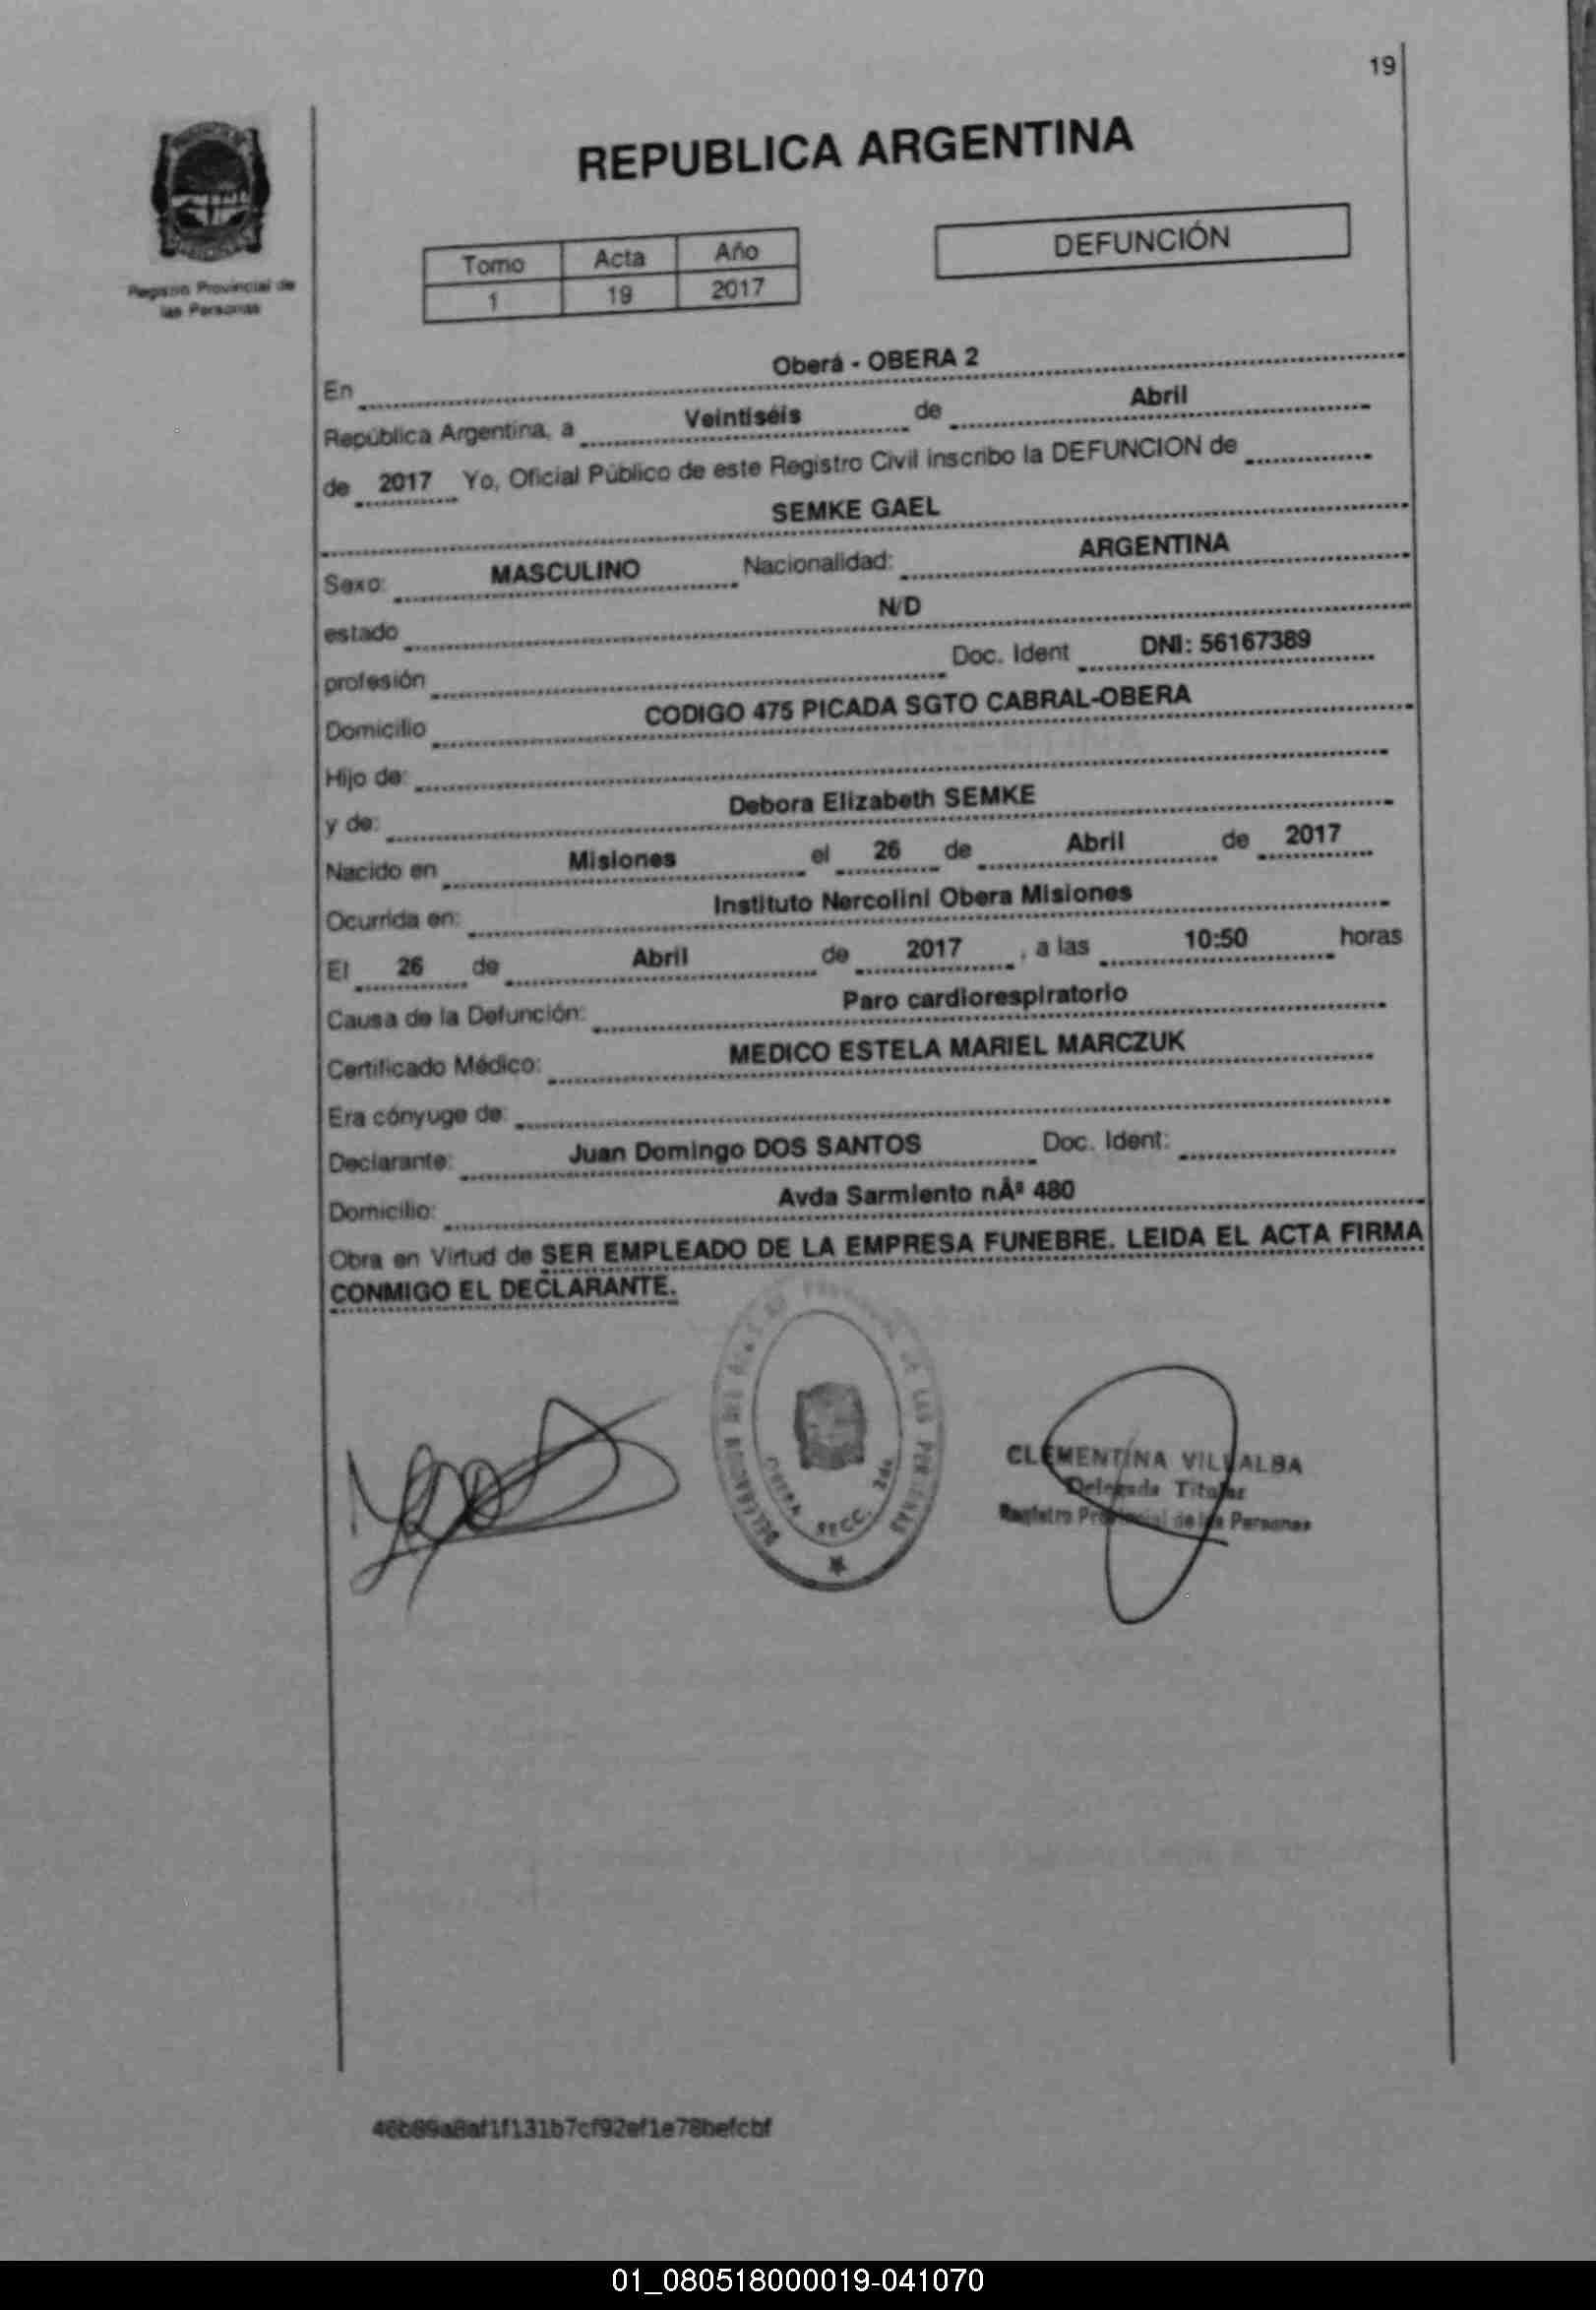 19
REPUBLICA ARGENTINA
Registro Provincial de
las Personas
Tomo Acta Año
1 19 2017
DEFUNCIÓN
En Oberá - OBERA 2
República Argentina, a Veintiséis de Abril
de 2017 Yo, Oficial Público de este Registro Civil inscribo la DEFUNCION de
SEMKE GAEL
Sexo: MASCULINO Nacionalidad: ARGENTINA
estado N/D
profesión Doc. Ident DNI: 56167389
Domicilio CODIGO 475 PICADA SGTO CABRAL-OBERA
Hijo de:
y de: Debora Elizabeth SEMKE
Nacido en Misiones el 26 de Abril de 2017
Ocurrida en: Instituto Nercolini Obera Misiones
El 26 de Abril de 2017 , a las 10:50 horas
Causa de la Defunción: Paro cardiorespiratorio
Certificado Médico: MEDICO ESTELA MARIEL MARCZUK
Era cónyuge de:
Declarante: Juan Domingo DOS SANTOS Doc. Ident:
Domicilio: Avda Sarmiento nÂª 480
Obra en Virtud de SER EMPLEADO DE LA EMPRESA FUNEBRE. LEIDA EL ACTA FIRMA
CONMIGO EL DECLARANTE.
DE LAS PERSONAS
SECC. 2da
CLEMENTINA VILLALBA
Delegada Titular
Registro Provincial de las Personas
46b89a8af1f131b7cf92ef1e78befcbf
01_080518000019-041070